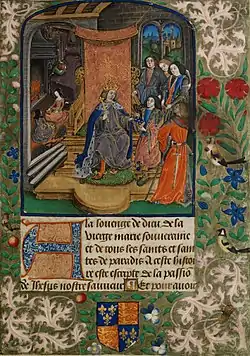 A la louenge de dieu de la
vierge marie souveraine
et de tous les saints et sain
tes de paradis A ceste histoi
re est escripte de la passio
de Ihesus nostre sauveur Et pour avoir